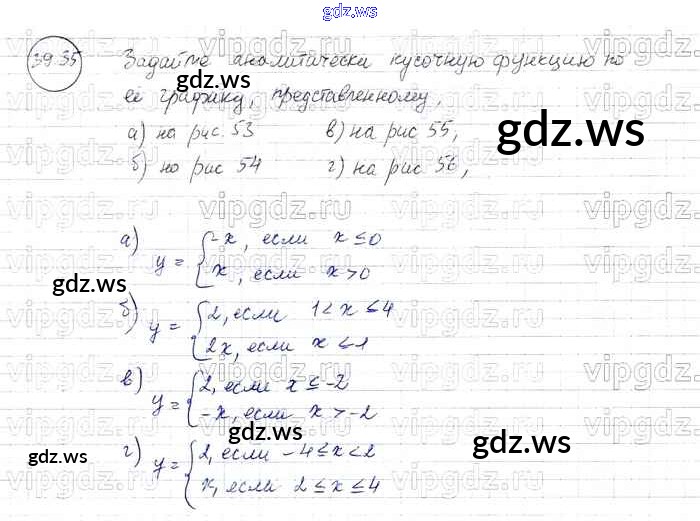 gdz.ws
39.35 Задайте аналитически кусочную функцию по
ее графику, представленному,
а) на рис. 53 в) на рис 55,
б) но рис 54 г) на рис 56,
gdz.ws
gdz.ws
а) y = { -x, если x ≤ 0
x, если x > 0
gdz.ws
б) y = { 2, если 1 < x ≤ 4
2x, если x ≤ 1
в) y = { 2, если x ≤ -2
-x, если x > -2
gdz.ws
г) y = { 2, если -4 ≤ x < 2
x, если 2 ≤ x ≤ 4
gdz.ws
gdz.ws